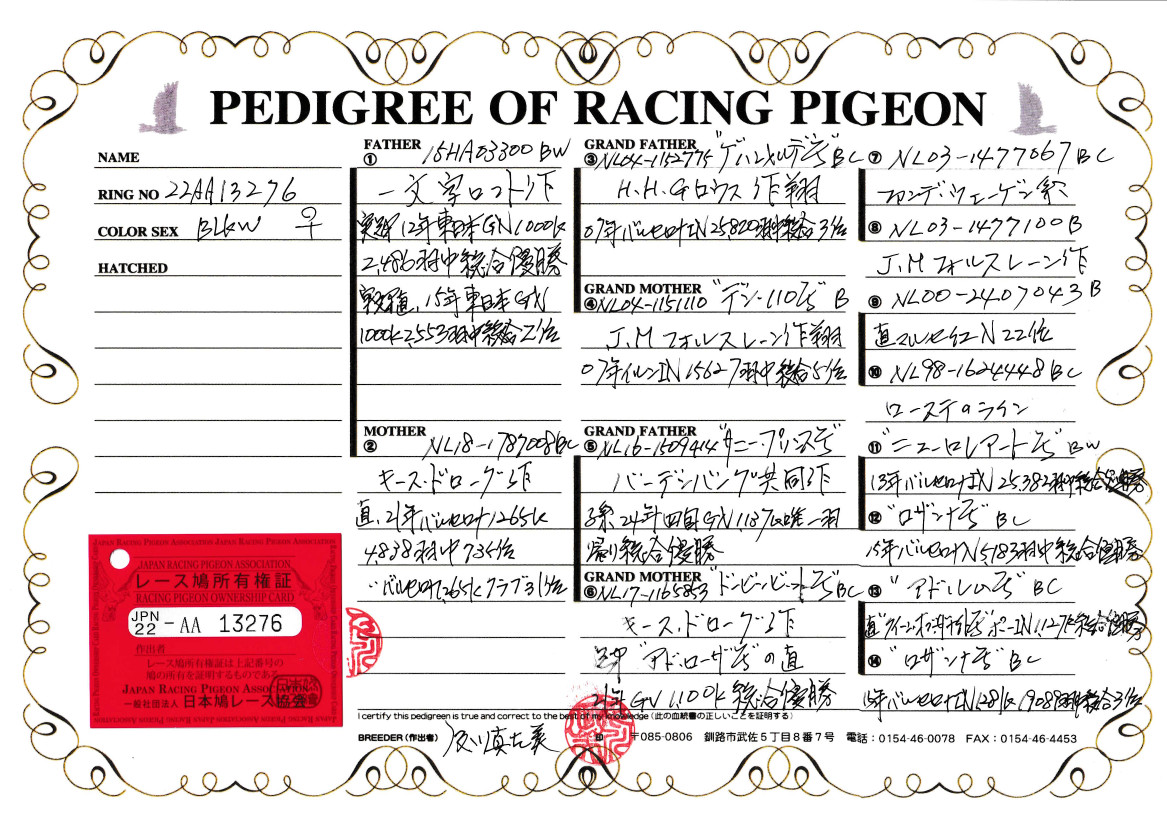 PEDIGREE OF RACING PIGEON
NAME
RING NO 22AA13276
COLOR SEX BLKW ♀
HATCHED
FATHER
① 15HA03300 BW
一文字ロフト作
12年東日本GN1000K
2,486羽中総合優勝
15年東日本GN
1000K2,553羽中総合2位
MOTHER
② NL18-1787008BC
キース・ドローグ作
直,21年バルセロナ1265K
4838羽中735位
〃バルセロナ1,265Kクラブ31位
GRAND FATHER
③NL04-1152775 BC
H.H.Gロウス作翔
07年バルセロナIN25820羽中総合3位
GRAND MOTHER
④NL04-1151110 "デン・110号" B
J.Mフォルスレーン作翔
07年イルンIN15627羽中総合5位
GRAND FATHER
⑤NL16-1509414 "サニー・プリンス号"
バーデンバング共同作
孫,24年四国GN1187K唯一羽
帰り総合優勝
GRAND MOTHER
⑥NL17-1165853 BC
キース・ドローグ作
"アドローザ号"の直
21年GN1,100K総合優勝
⑦ NL03-1477067BC
ファンデ・ウェーゲン系
⑧ NL03-1477100B
J.Mフォルスレーン作
⑨ NL00-2407043B
直マルセイユN22位
⑩ NL98-1624448BC
ローステのライン
⑪ "ニューロレアート号" BW
13年バルセロナIN25,382羽中総合優勝
⑫ "ロザンナ号" BC
15年バルセロナN5183羽中総合優勝
⑬ "アドルの号" BC
⑭ "ロザンナ号" BC
JAPAN RACING PIGEON ASSOCIATION
レース鳩所有権証
RACING PIGEON OWNERSHIP CARD
JPN 22 - AA 13276
作出者
レース鳩所有権証は上記番号の
鳩の所有を証明するものである
JAPAN RACING PIGEON ASSOCIATION
一般社団法人 日本鳩レース協会
I certify this pedigreen is true and correct to the best of my knowledge (此の血統書の正しいことを証明する)
BREEDER (作出者) 及川真左美 印 〒085-0806 釧路市武佐5丁目8番7号 電話:0154-46-0078 FAX:0154-46-4453